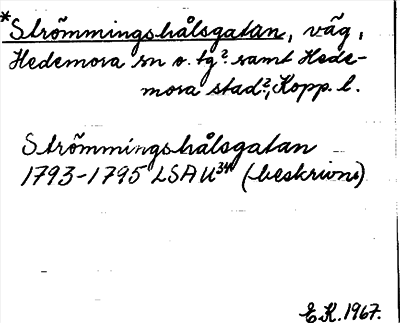 *Strömmingshålsgatan, väg,
Hedemora sn o. tg? samt Hede-
mora stad?, Kopp. l.
Strömmingshålsgatan
1793-1795 LSA U34 (beskrivn)
E.K. 1967.